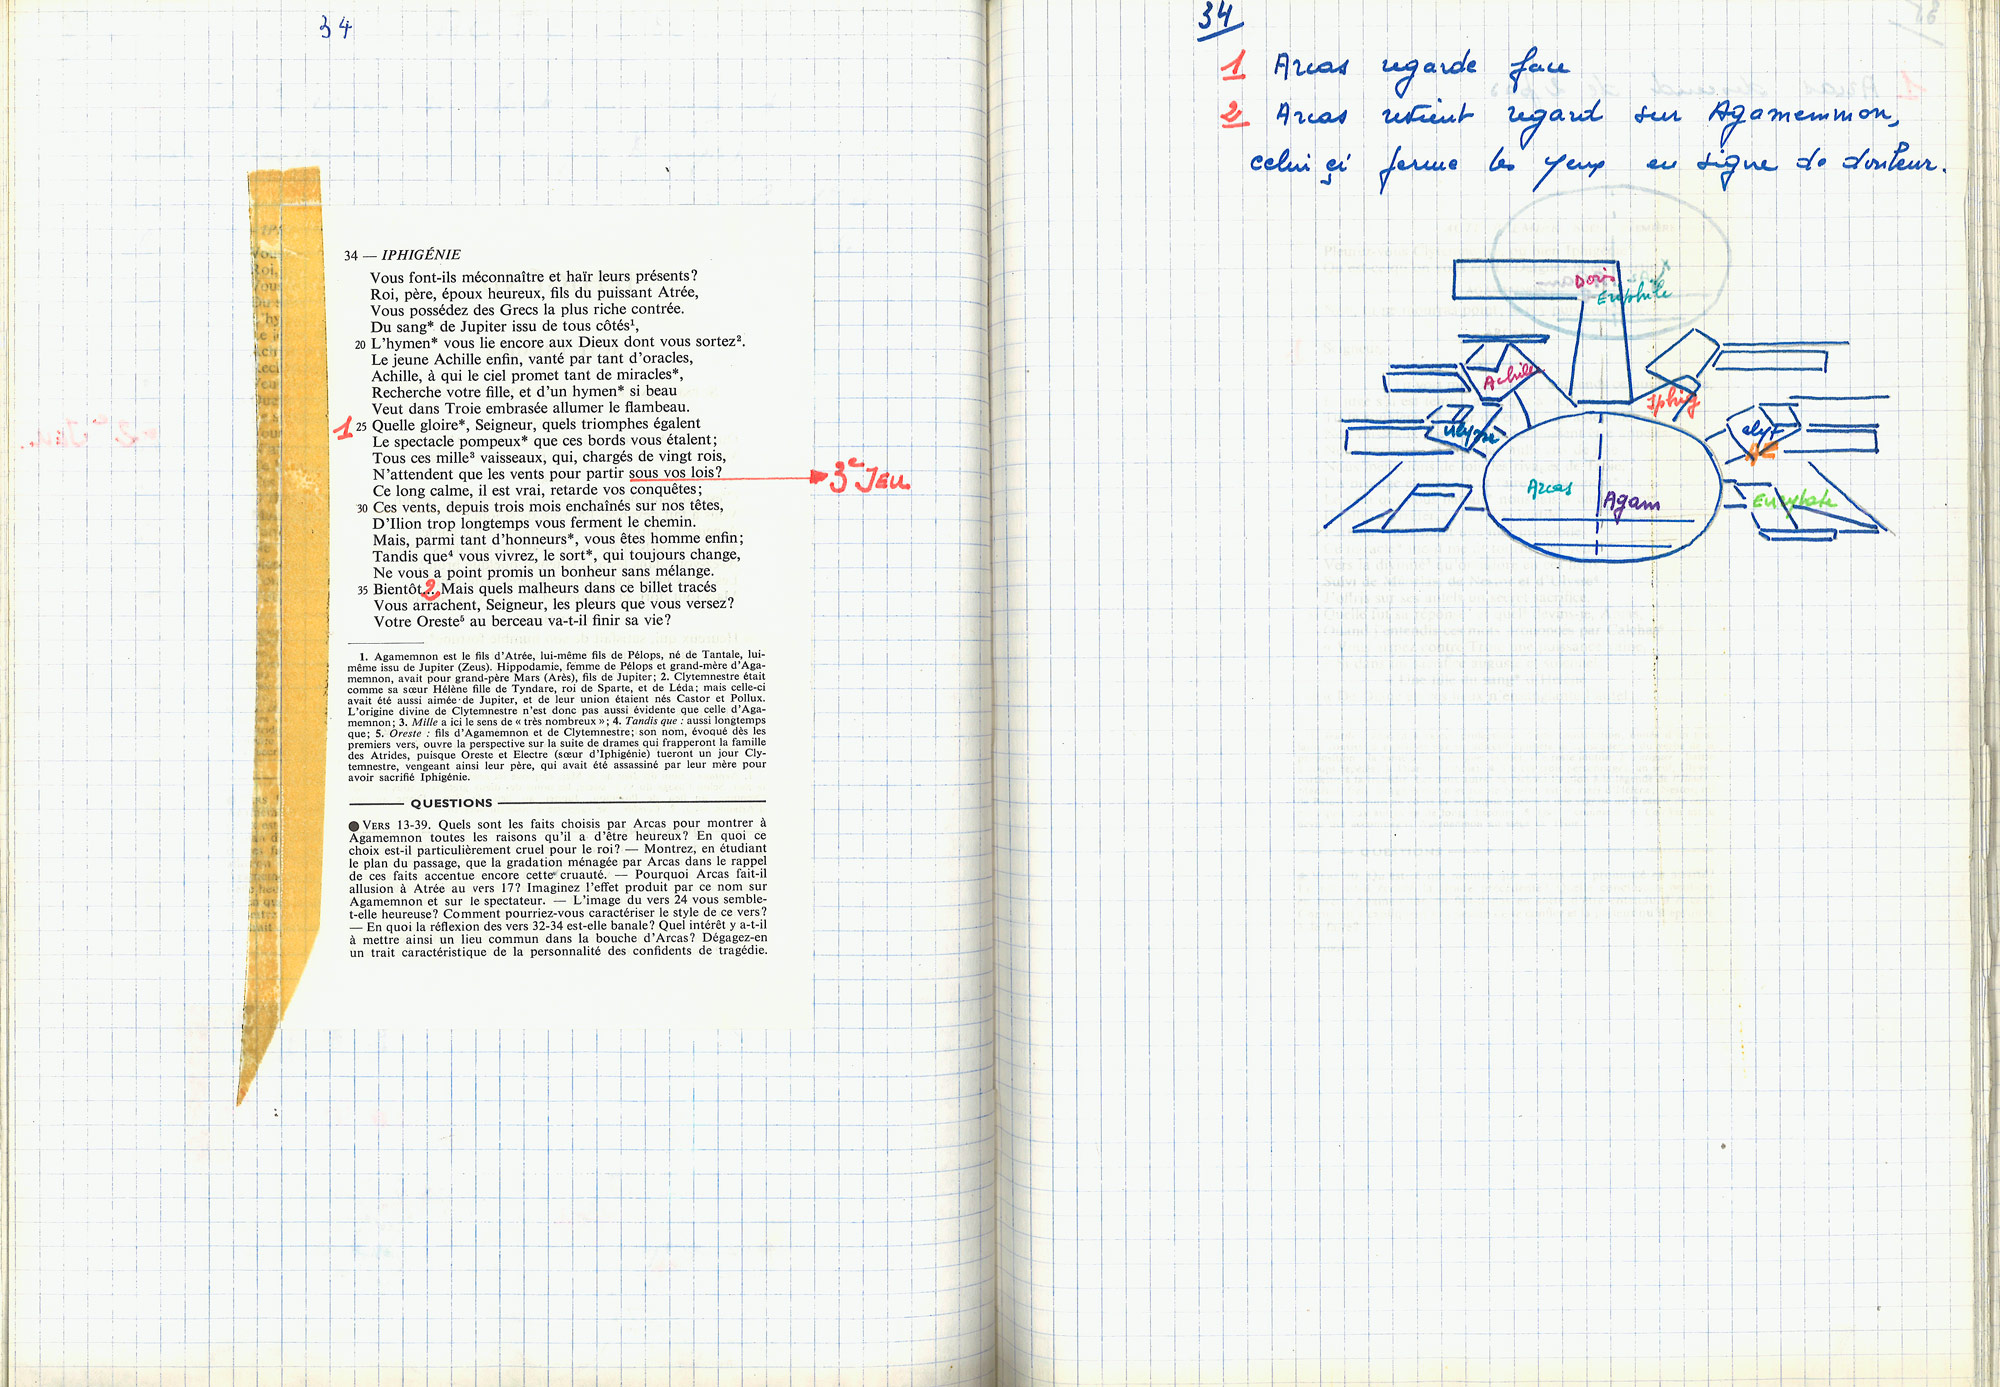 34
34 — IPHIGÉNIE
Vous font-ils méconnaître et haïr leurs présents?
Roi, père, époux heureux, fils du puissant Atrée,
Vous possédez des Grecs la plus riche contrée.
Du sang* de Jupiter issu de tous côtés¹,
20 L'hymen* vous lie encore aux Dieux dont vous sortez².
Le jeune Achille enfin, vanté par tant d'oracles,
Achille, à qui le ciel promet tant de miracles*,
Recherche votre fille, et d'un hymen* si beau
Veut dans Troie embrasée allumer le flambeau.
1 25 Quelle gloire*, Seigneur, quels triomphes égalent
Le spectacle pompeux* que ces bords vous étalent;
Tous ces mille³ vaisseaux, qui, chargés de vingt rois,
N'attendent que les vents pour partir sous vos lois? 3e JEU
Ce long calme, il est vrai, retarde vos conquêtes;
30 Ces vents, depuis trois mois enchaînés sur nos têtes,
D'Ilion trop longtemps vous ferment le chemin.
Mais, parmi tant d'honneurs*, vous êtes homme enfin;
Tandis que⁴ vous vivrez, le sort*, qui toujours change,
Ne vous a point promis un bonheur sans mélange.
35 Bientôt... 2 Mais quels malheurs dans ce billet tracés
Vous arrachent, Seigneur, les pleurs que vous versez?
Votre Oreste⁵ au berceau va-t-il finir sa vie?
1. Agamemnon est le fils d'Atrée, lui-même fils de Pélops, né de Tantale, lui-
même issu de Jupiter (Zeus). Hippodamie, femme de Pélops et grand-mère d'Aga-
memnon, avait pour grand-père Mars (Arès), fils de Jupiter; 2. Clytemnestre était
comme sa sœur Hélène fille de Tyndare, roi de Sparte, et de Léda; mais celle-ci
avait été aussi aimée de Jupiter, et de leur union étaient nés Castor et Pollux.
L'origine divine de Clytemnestre n'est donc pas aussi évidente que celle d'Aga-
memnon; 3. Mille a ici le sens de « très nombreux »; 4. Tandis que : aussi longtemps
que; 5. Oreste : fils d'Agamemnon et de Clytemnestre; son nom, évoqué dès les
premiers vers, ouvre la perspective sur la suite de drames qui frapperont la famille
des Atrides, puisque Oreste et Electre (sœur d'Iphigénie) tueront un jour Cly-
temnestre, vengeant ainsi leur père, qui avait été assassiné par leur mère pour
avoir sacrifié Iphigénie.
QUESTIONS
● VERS 13-39. Quels sont les faits choisis par Arcas pour montrer à
Agamemnon toutes les raisons qu'il a d'être heureux? En quoi ce
choix est-il particulièrement cruel pour le roi? — Montrez, en étudiant
le plan du passage, que la gradation ménagée par Arcas dans le rappel
de ces faits accentue encore cette cruauté. — Pourquoi Arcas fait-il
allusion à Atrée au vers 17? Imaginez l'effet produit par ce nom sur
Agamemnon et sur le spectateur. — L'image du vers 24 vous semble-
t-elle heureuse? Comment pourriez-vous caractériser le style de ce vers?
— En quoi la réflexion des vers 32-34 est-elle banale? Quel intérêt y a-t-il
à mettre ainsi un lieu commun dans la bouche d'Arcas? Dégagez-en
un trait caractéristique de la personnalité des confidents de tragédie.
34
1 Arcas regarde face
2 Arcas retient regard sur Agamemnon,
celui çi ferme les yeux en signe de douleur.
Doris
Eriphile
Achille
Iphig
Ulysse
Clyt
AE
Arcas
Agam
Eurybate